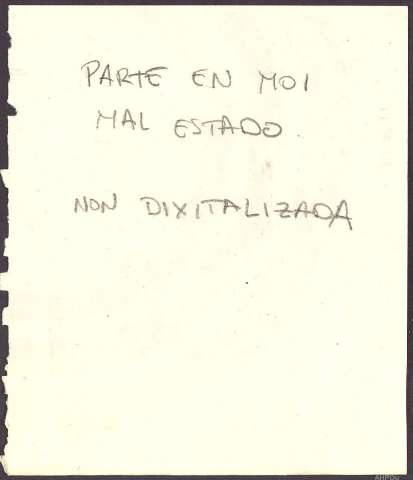 PARTE EN MOI
MAL ESTADO.
NON DIXITALIZADA
AHPOu